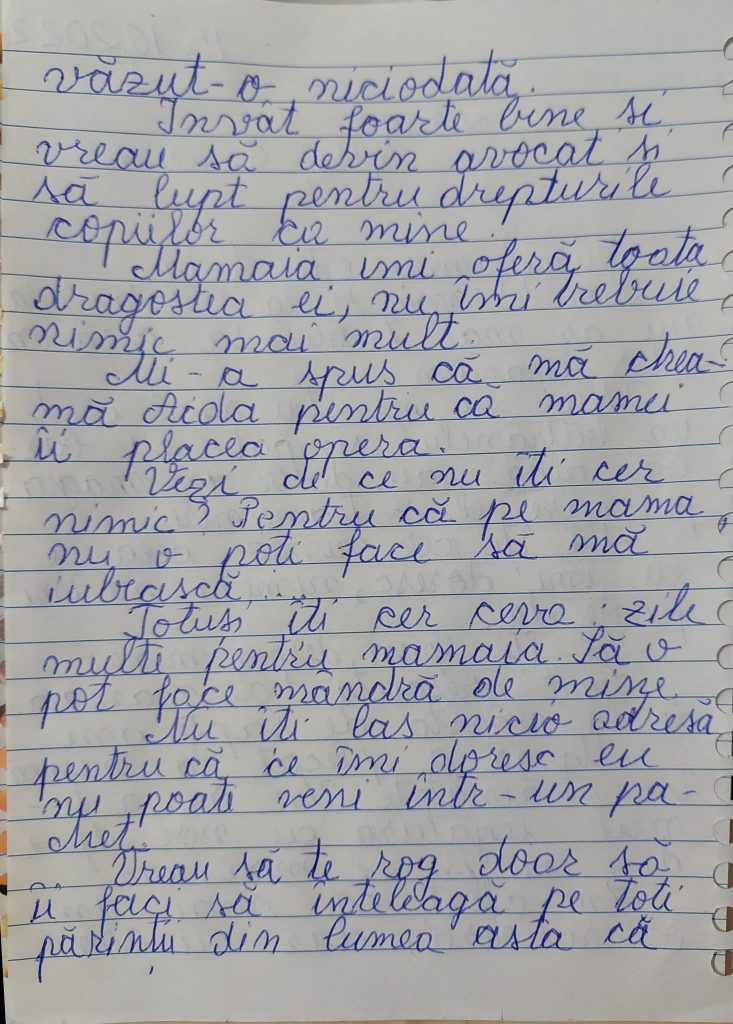 văzut-o niciodată.
Învăt foarte bine si
vreau să devin avocat si
să lupt pentru drepturile
copiilor ca mine.
Mamaia imi oferă toata
dragostea ei, nu îmi trebuie
nimic mai mult.
Mi-a spus că mă chea-
mă Aida pentru că mamei
îi placea opera.
Vezi de ce nu îti cer
nimic? Pentru că pe mama
nu o poti face să mă
iubească....
Totusi îti cer ceva: zile
multe pentru mamaia. Să o
pot face mândră de mine.
Nu îti las nicio adresă
pentru că ce îmi doresc eu
nu poate veni într-un pa-
chet.
Vreau să te rog doar să
îi faci să înteleagă pe toti
părintii din lumea asta că